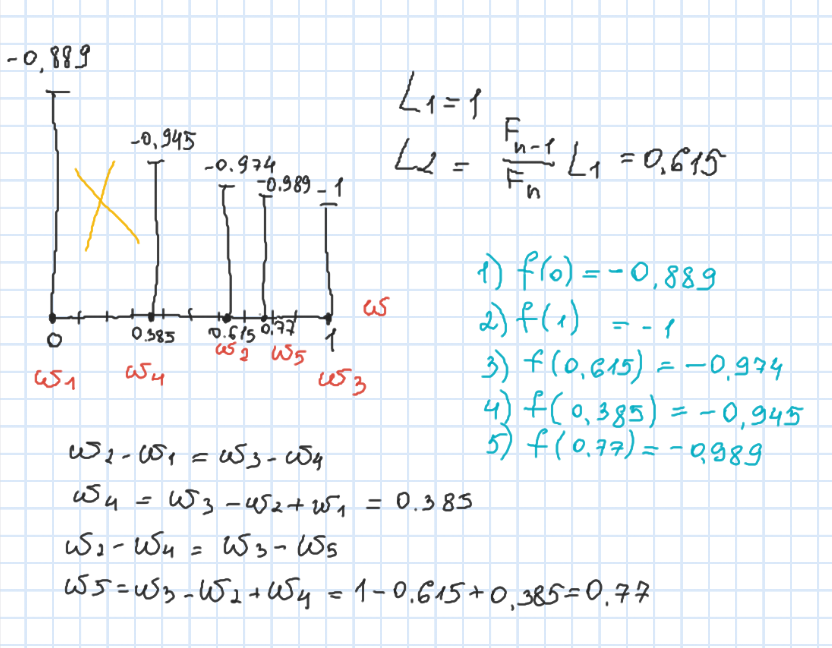 -0,889
-0,945
-0.974
-0.989 -1
0 0.385 0.615 0,77 1 ω
ω1 ω4 ω2 ω5 ω3
L1=1
L2 = F n-1 / F n L1 = 0,615
1) f(0) = -0,889
2) f(1) = -1
3) f(0,615) = -0,974
4) f(0,385) = -0,945
5) f(0.77) = -0,989
ω2 - ω1 = ω3 - ω4
ω4 = ω3 - ω2 + ω1 = 0.385
ω2 - ω4 = ω3 - ω5
ω5 = ω3 - ω2 + ω4 = 1 - 0.615 + 0,385 = 0.77